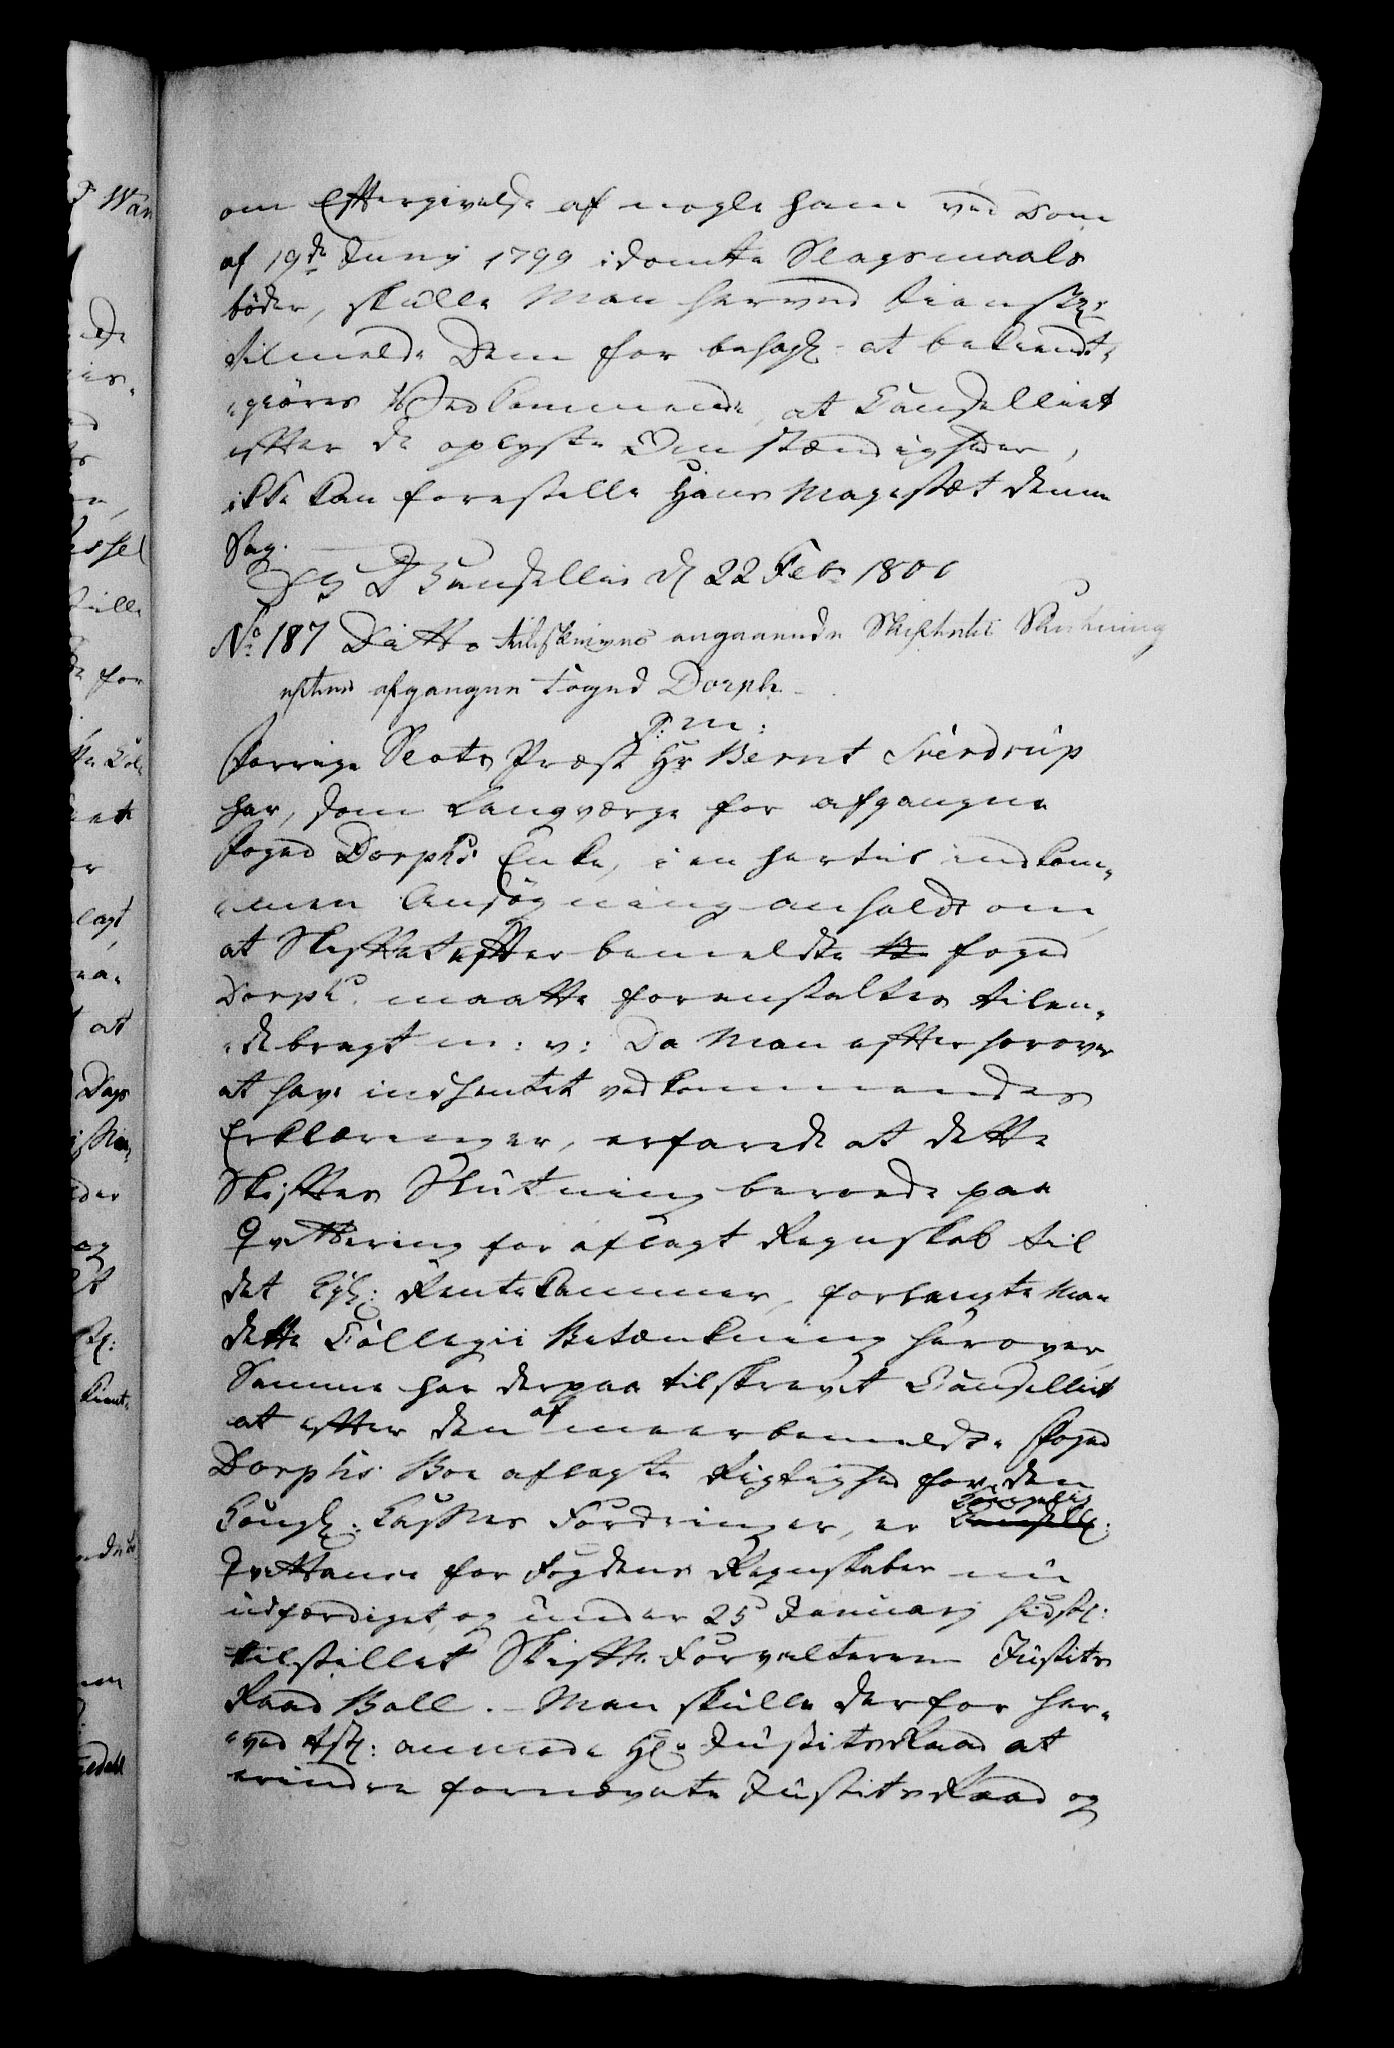 om Eftergivelse af nogle ham ved Dom
af 19de Junij 1799 idømte Slagsmaals
bøder, skulle Man herved tienstl:
tilmelde Dem for behagl: at bekiendt-
-giøres Vedkommende, at Cancelliet
efter de oplyste Omstændigheder,
ikke kan forestille Hans Majestæt denne
Sag.
D Cancellie d 22 Febr 1800
No 187 Ditto tilskrives angaaende Skiftets Slutning
efter afgangne Foged Dorph
P: M:
Forrige Slots Præst Hr Bernt Sverdrup
har, som Laugværge for afgangne
Foged Dorphs Enke, i en hertil indkom-
-men Ansøgning anholdt om
at Skiftet efter bemeldte Foged
Dorph maatte foranstaltes tilen-
-debragt m: v: Da Man efter herover
at have indhentet vedkommendes
Erklæringer, erfarede at dette
Skiftes Slutning beroede paa
Qvittering for aflagt Regnskab til
det Kgl: Rentekammer, forlangte Man
dette Collegii Betænkning herover,
Samme har derpaa tilskrevet Cancelliet
at efter den af meerbemeldte Foged
Dorphs Boe aflagte Rigtighed for den
Kongl: Casses Fordringer, er Kongelig
Qvittance for Fogdens Regnskaber nu
udfærdiget, og under 25 Januarij sidstl:
tilstillet Skifte Forvalteren Justits
Raad Boll. – Man skulle derfor her-
-ved tstl: anmode Hr: JustitsRaad at
erindre fornævnte JustitsRaad og